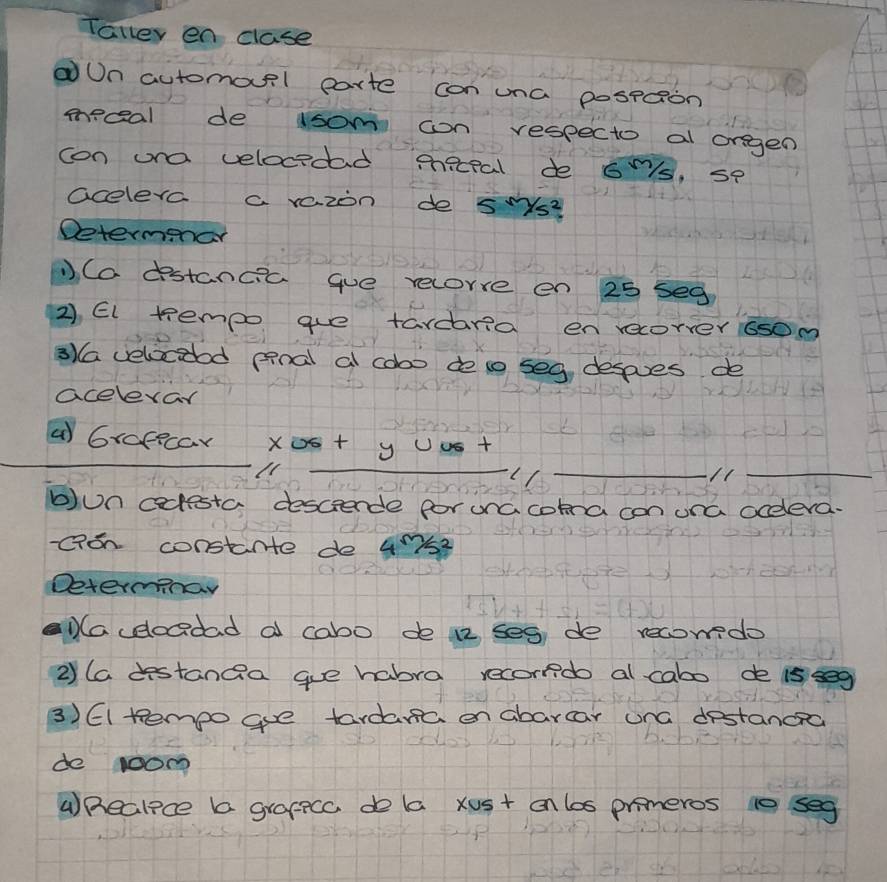 Taller en clase
a) Un automovil parte con una posición
inicial de 150m con respecto al origen
con una velocidad inicial de 6 m/s, si
acelera a razón de 5 m/s²
Determinar
1) La distancia que recorre en 25 seg
2) El tiempo que tardaria en recorrer 650m
3) La velocidad final al cabo de 10 seg, despues de
acelerar
4) Graficar x vs t y v vs t
b) Un ciclista desciende por una colina con una acelera-
ción constante de 4 m/s²
Determinar
1) La velocidad al cabo de 12 seg de recorrido
2) La distancia que habra recorrido al cabo de 15 seg
3) El tiempo que tardaria en abarcar una distancia
de 100m
4) Realice la grafica de la x vs t en los primeros 10 seg